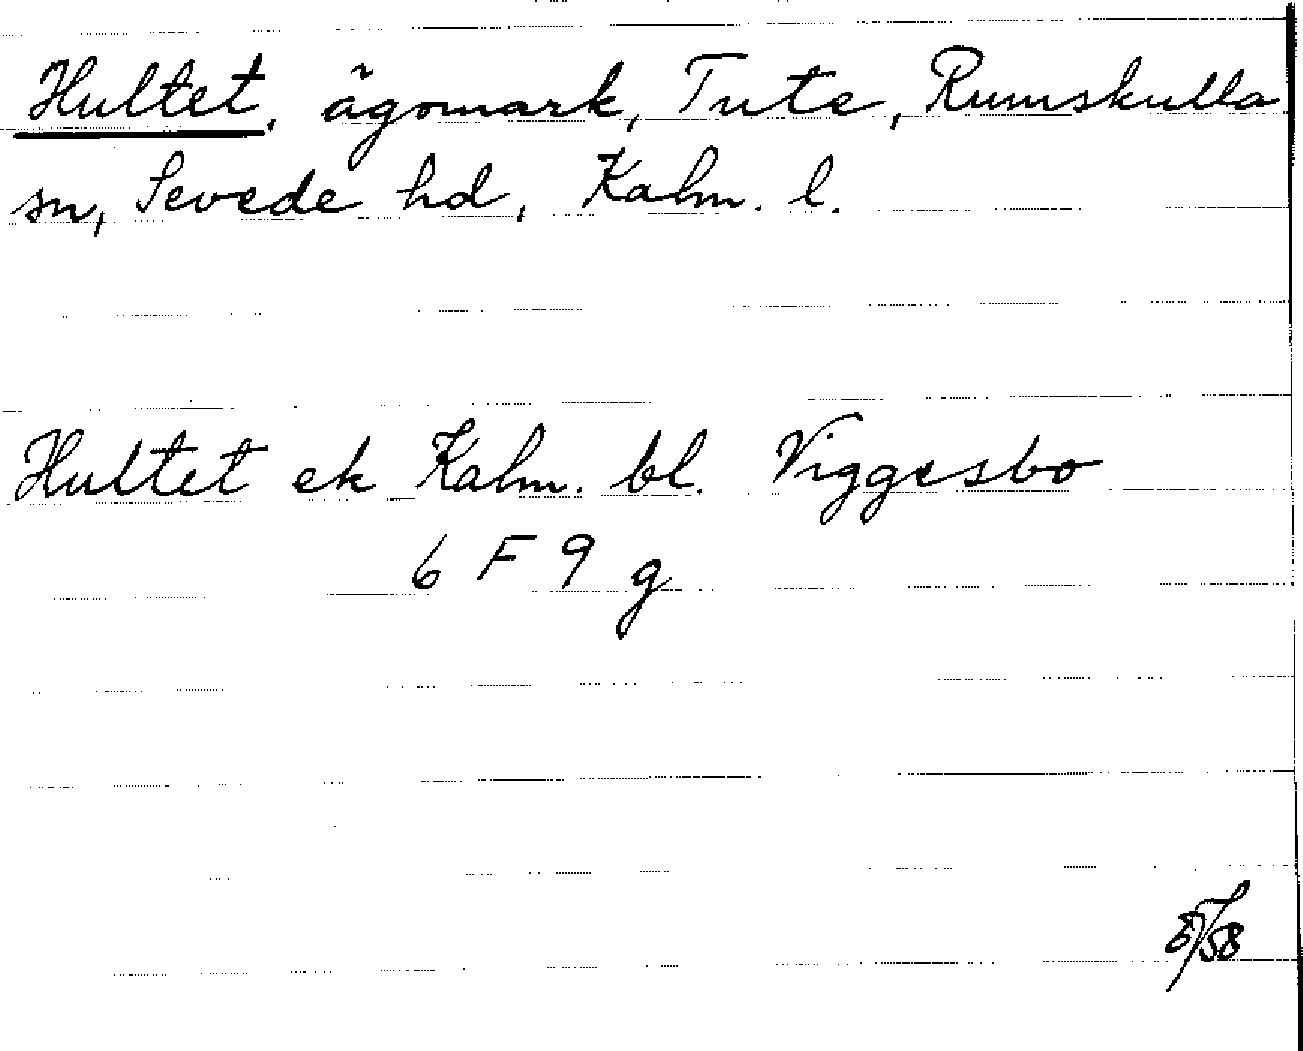 Hultet, ägomark, Tute, Rumskulla
sn, Sevede hd, Kalm. l.
Hultet ek Kalm. bl. Viggesbo
6 F 9 g